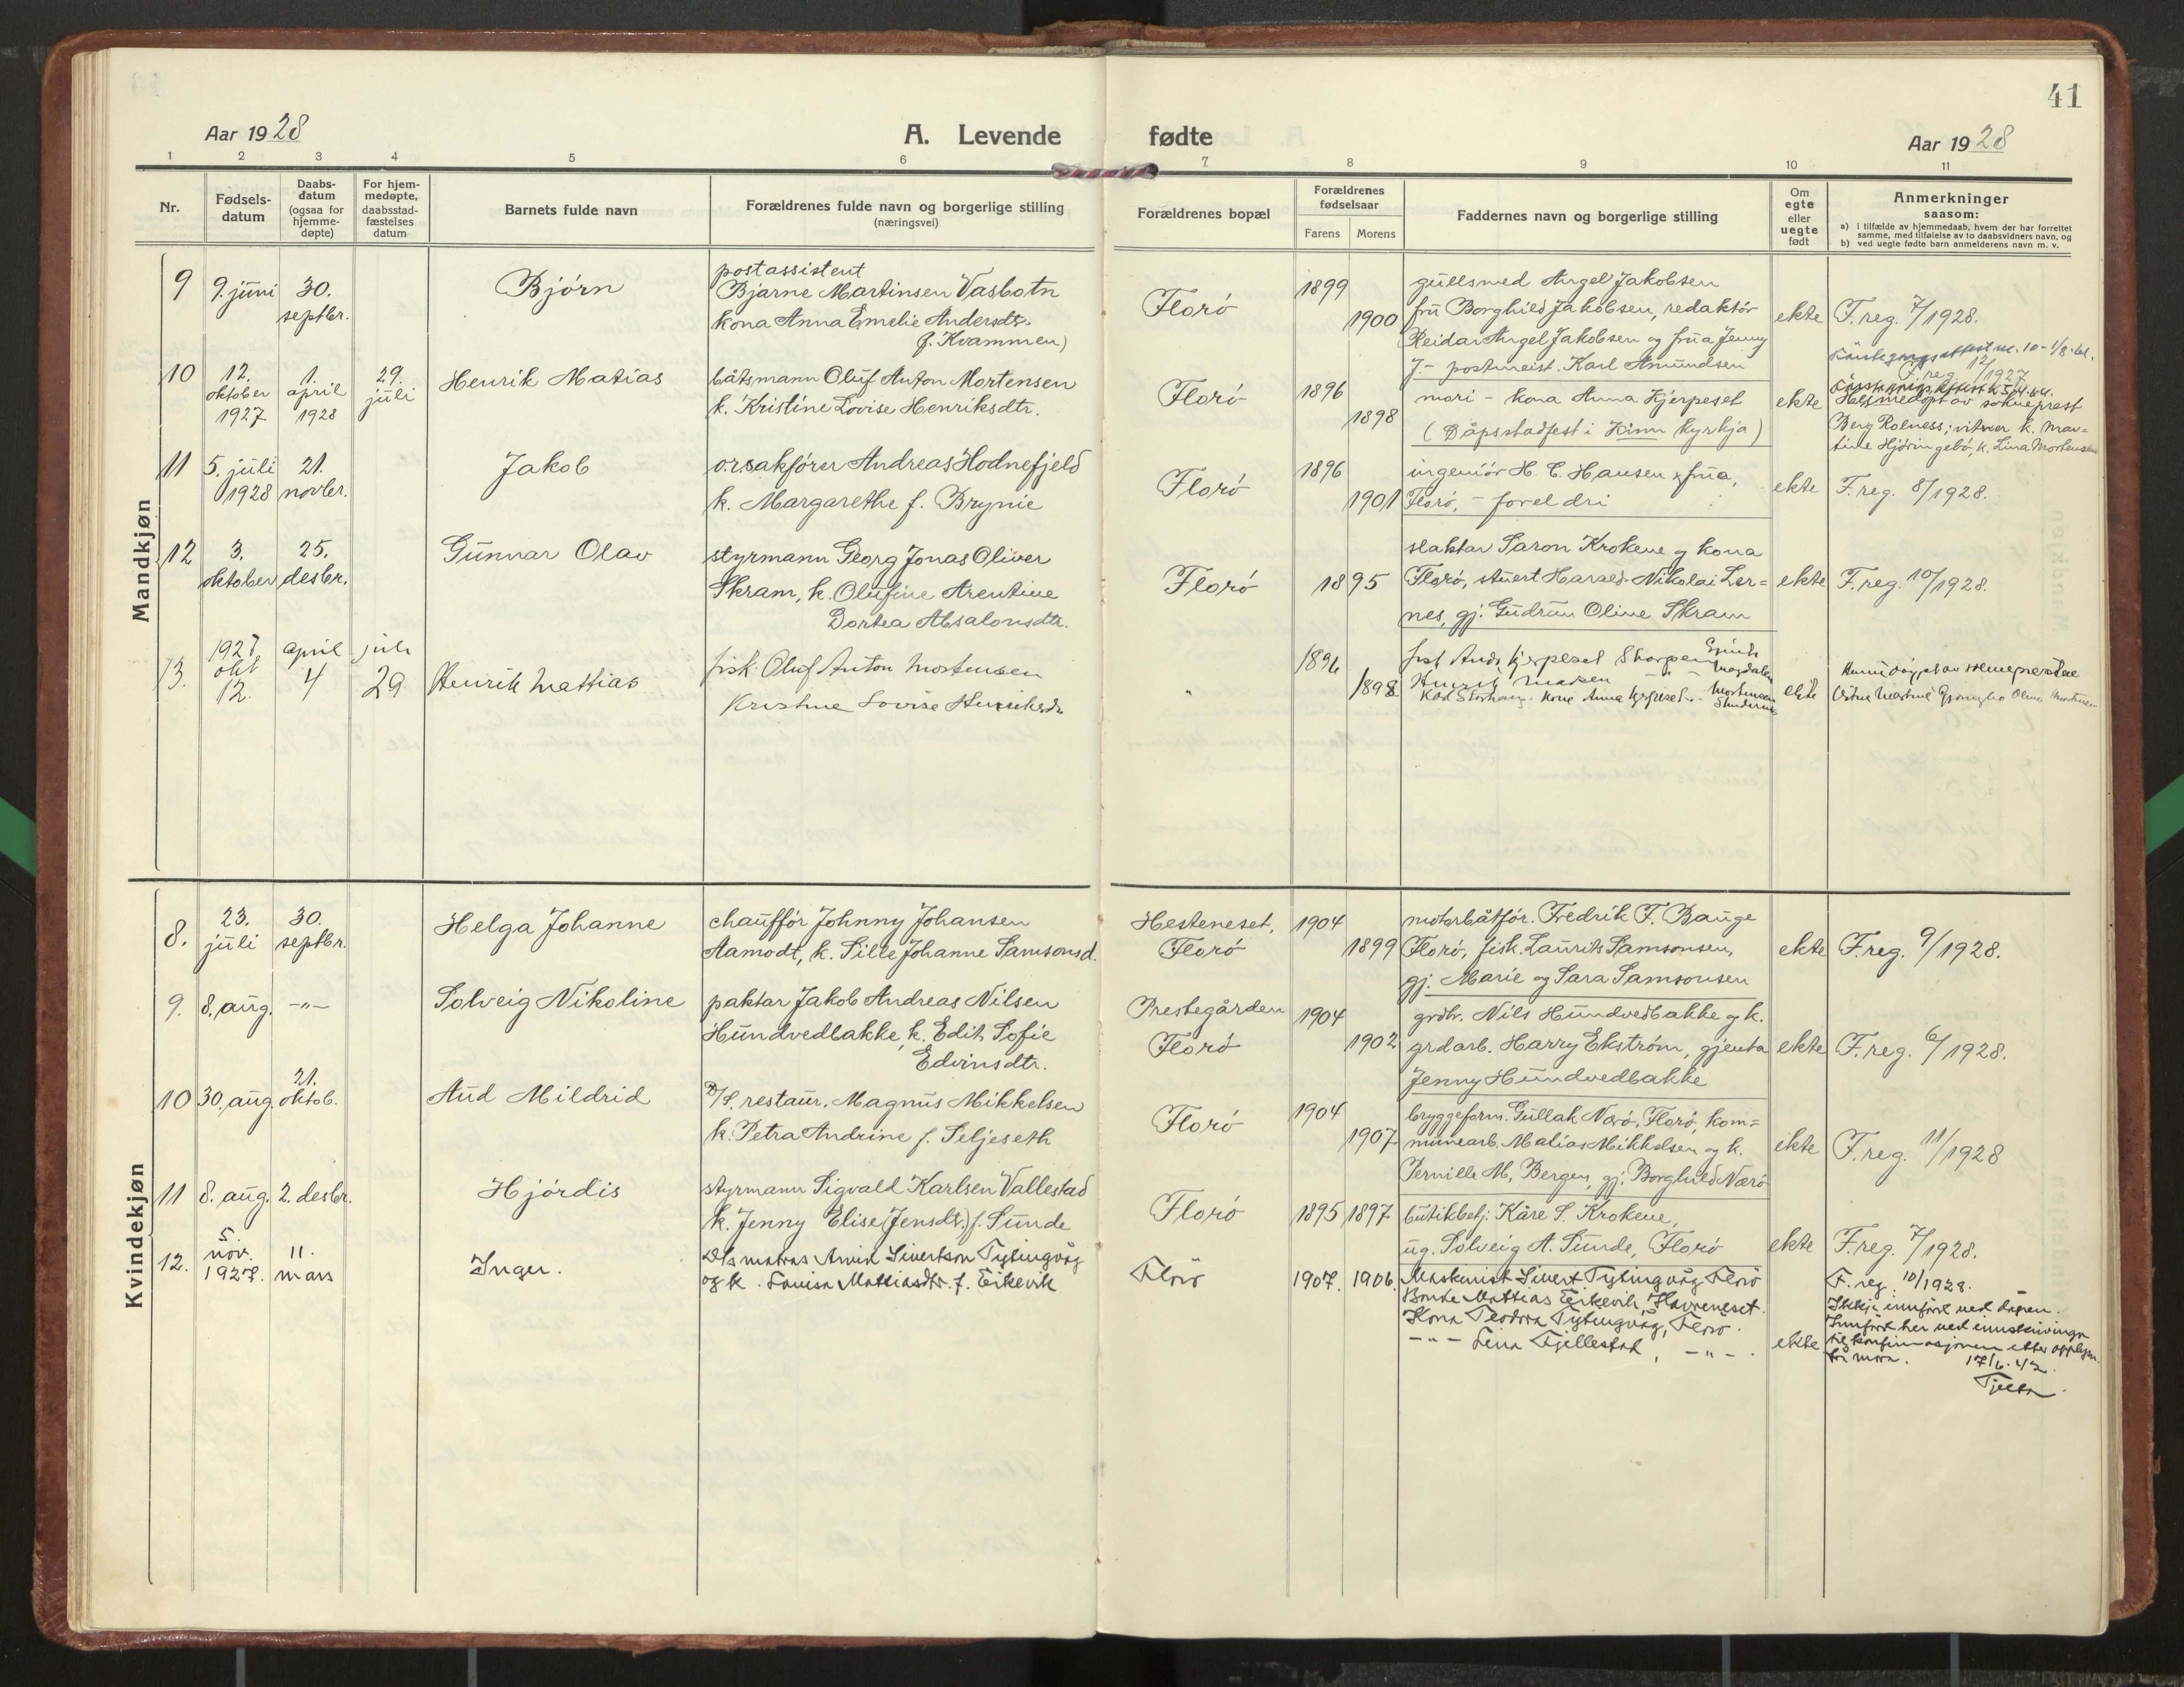 41
Aar 1928
A. Levende fødte
Aar 1928
1 2 3 4 5 6 7 8 9 10 11
Nr.
Fødsels-
datum
Daabs-
datum
(ogsaa for
hjemme-
døpte)
For hjem-
medøpte,
daabsstad-
fæstelses
datum
Barnets fulde navn
Forældrenes fulde navn og borgerlige stilling
(næringsvei)
Forældrenes bopæl
Forældrenes
fødselsaar
Farens Morens
Faddernes navn og borgerlige stilling
Om
egte
eller
uegte
født
Anmerkninger
saasom:
a) i tilfælde av hjemmedaab, hvem der har forrettet
samme, med tilføielse av to daabsvidners navn, og
b) ved uegte fødte barn anmelderens navn m. v.
Mandkjøn
9
9. juni
30.
septbr.
Bjørn
postassistent
Bjarne Martinsen Vasbotn
kona Anna Emelie Andersdtr.
f. Kvammen)
Florö
1899
1900
gullsmed Angel Jakobsen
frú Borghild Jakobsen, redaktör
Reidar Angel Jakobsen og frúa Jenny
J. - postmeist. Karl Amundsen
ekte
F. reg. 7/1928.
10
12.
oktober
1927
1.
april
1928
29.
júli
Henrik Matias
båtsmann Oluf Anton Mortensen
k. Kristine Lovise Henriksdtr.
Florö
1896
1898
mori - kona Anna Hjerpeset
(Dåpsstadfest i Kinn kyrkja)
ekte
F. reg. 12/1927
Heimedöpt av sokneprest
Berg Rolness; vitner k. Mar=
tine Hjöringebö, k. Lina Mortensen
11
5. júli
1928
21.
novbr.
Jakob
o.r.sakförer Andreas Hodnefjeld
k. Margarethe f. Brynie
Florö
1896
1901
ingeniör H. C. Hansen & frúa,
Florö, - foreldri
ekte
F. reg. 8/1928.
12
3.
oktober
25.
desbr.
Gúnnar Olav
styrmann Georg Jonas Oliver
Skram, k. Olufine Arentine
Dortea Absalonsdtr.
Florö
1895
slaktar Saron Krokene og kona
Florö, stúert Harald Nikolai Ler=
nes, gj. Gúdrún Oline Skram
ekte
F. reg. 10/1928.
13.
1927
okt
12.
april
4
juli
29
Henrik Mattias
fisk. Oluf Anton Mortensen
Kristine Lovise Henriksdtr
"
1896
1898
ekte
Kvindekjøn
8.
23.
júli
30.
septbr.
Helga Johanne
chaufför Johnny Johansen
Aamodt, k. Sille Johanne Samsonsd.
Hesteneset,
Florö
1904
1899
motorbåtför. Fredrik F. Baúge
Florö, fisk. Laurits Samsonsen,
gj. Marie og Sara Samsonsen
ekte
F. reg. 9/1928.
9.
8. aug.
-"-
Solveig Nikoline
paktar Jakob Andreas Nilsen
Hundvedbakke, k. Edit Sofie
Edvinsdtr.
Prestegården
Florö
1904
1902
grdbr. Nils Hundvedbakke og k.
grdarb. Harry Ekström, gjenta
Jenny Hundvedbakke
ekte
F. reg. 6/1928.
10
30. aug.
21.
oktob.
Aúd Mildrid
D/S. restaur. Magnús Mikkelsen
k. Petra Andrine f. Seljeseth
Florö
1904
1907
bryggeform. Gullak Nærö, Florö, kom=
munearb. Matias Mikkelsen og k.
Pernille M, Bergen, gj. Borghild Nærö
ekte
F. reg. 11/1928
11
8. aug.
2. desbr.
Hjördis
styrmann Sigvald Karlsen Vallestad
k. Jenny Elise (Jensdtr.) f. Sunde
Florö
1895
1897
butikbetj. Kåre S. Krokene,
ug. Solveig A. Sunde, Florö
ekte
F. reg. 7/1928.
12.
5.
nov.
1927.
11.
mars
Inger.
D/s matros Arvid Sivertson Tytingvåg
og k. Lovisa Mattiasdtr. f. Eikevik
Florö
1907.
1906.
Maskinist Sivert Tytingvåg Florö
Bonde Mattias Eikevik, Havreneset.
Kona Teodora Tytingvåg, Florö.
-"- Lina Fjellestad, -"-.
ekte
F. reg. 10/1928.
Ikkje innfört ved dåpen.
Innfört her ved innskrivinga
til konfirmasjonen etter opplysn.
frå mora. 17/6.42.